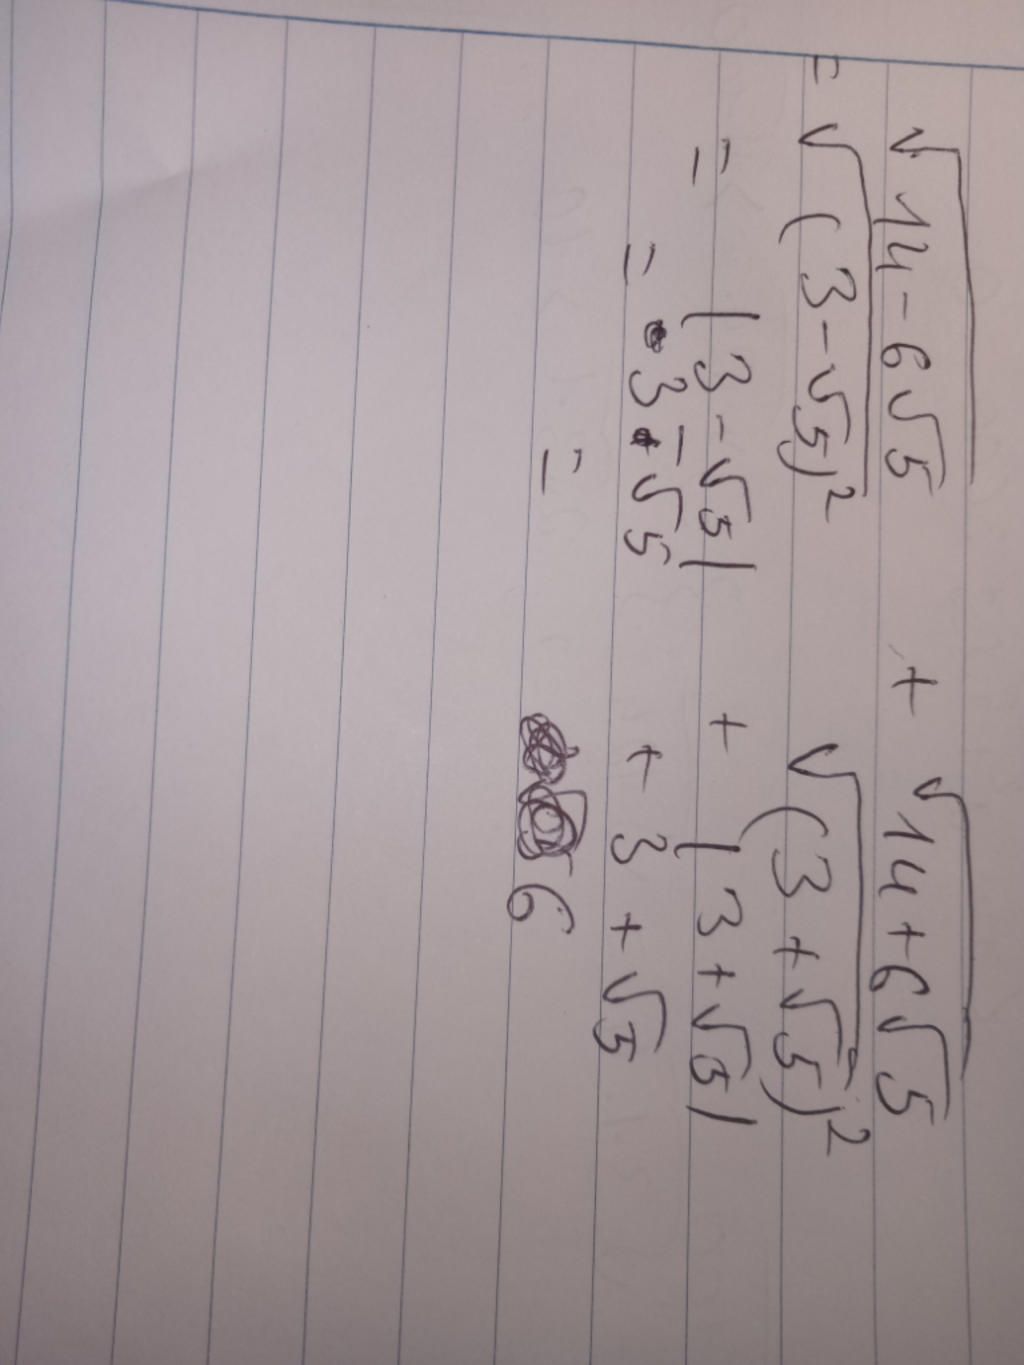 √14-6√5 + √14+6√5
= √(3-√5)² + √(3+√5)²
= |3-√5| + |3+√5|
= 3-√5 + 3+√5
= 6